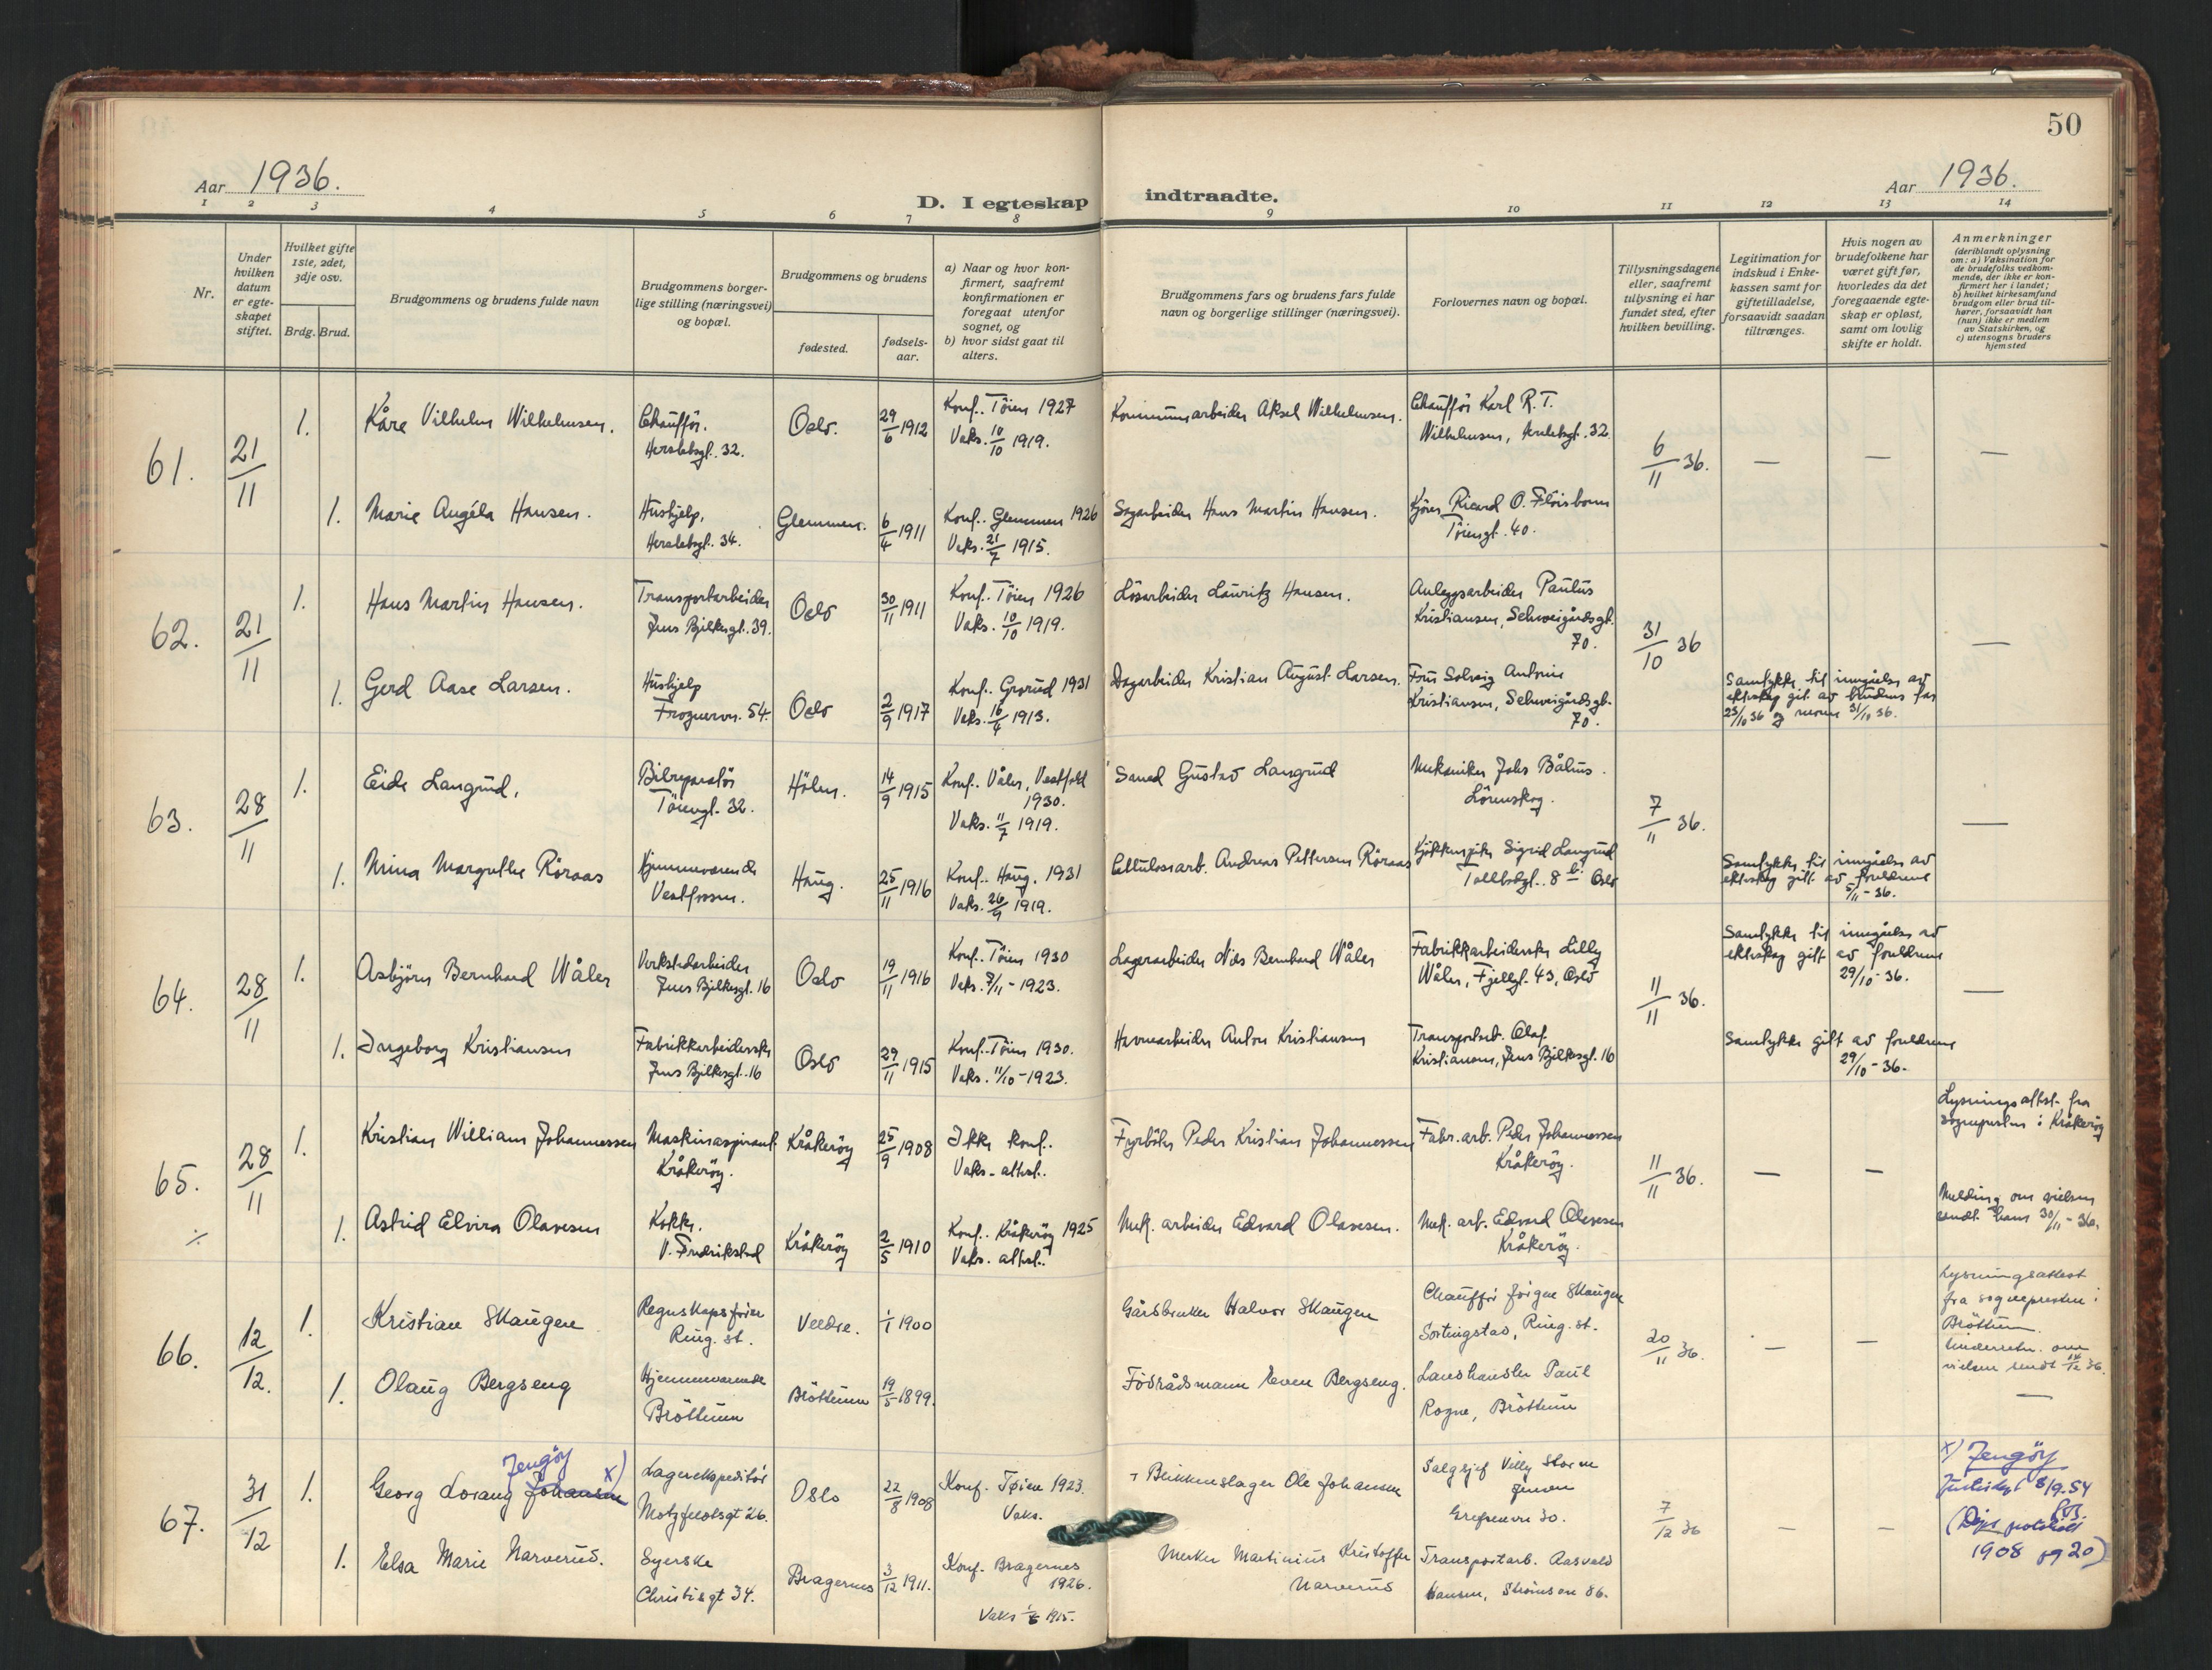 50
Aar 1936.
D. I egteskap indtraadte.
Aar 1936.
1 2 3 4 5 6 7 8 9 10 11 12 13 14
Nr.
Under
hvilken
datum
er egte-
skapet
stiftet.
Hvilket gifte
1ste, 2det,
3dje osv.
Brdg. Brud.
Brudgommens og brudens fulde navn
Brudgommens borger-
lige stilling (næringsvei)
og bopæl.
Brudgommens og brudens
fødested.
fødsels-
aar.
a) Naar og hvor kon-
firmert, saafremt
konfirmationen er
foregaat utenfor
sognet, og
b) hvor sidst gaat til
alters.
Brudgommens fars og brudens fars fulde
navn og borgerlige stillinger (næringsvei).
Forlovernes navn og bopæl.
Tillysningsdagene
eller, saafremt
tillysning ei har
fundet sted, efter
hvilken bevilling.
Legitimation for
indskud i Enke-
kassen samt for
giftetilladelse,
forsaavidt saadan
tiltrænges.
Hvis nogen av
brudefolkene har
været gift før,
hvorledes da det
foregaaende egte-
skap er opløst,
samt om lovlig
skifte er holdt.
Anmerkninger
(deriblandt oplysning
om: a) Vaksination for
de brudefolks vedkom-
mende, der ikke er kon-
firmert her i landet;
b) hvilket kirkesamfund
brudgom eller brud til-
hører, forsaavidt han
(hun) ikke er medlem
av Statskirken, og
c) utensogns bruders
hjemsted
61. 21/11
1. Kåre Vilhelm Wilhelmsen.
Chauffør.
Herslebsgt. 32.
Oslo. 29/6 1912
Konf. Tøien 1927
Vaks. 10/10 1919.
Kommunearbeider Aksel Wilhelmsen.
Chauffør Karl R. T.
Wilhelmsen, Herslebsgt. 32.
6/11 36. — — —
1. Marie Angéla Hansen.
Hushjelp,
Herslebsgt. 34.
Glemmen. 6/4 1911
Konf. Glemmen 1926
Vaks. 21/7 1915.
Sagarbeider Hans Martin Hansen.
Kjører Ricard O. Fløisbonn
Tøiengt. 40.
62. 21/11
1. Hans Martin Hansen.
Transportarbeider
Jens Bjelkesgt. 39.
Oslo 30/11 1911
Konf. Tøien 1926
Vaks. 10/10 1919.
Løsarbeider Lauritz Hansen.
Anleggsarbeider Paulus
Kristiansen, Schweigårdsgt.
70.
31/10 36 —
1. Gerd Aase Larsen.
Hushjelp
Frognervn. 54.
Oslo 2/9 1917
Konf. Grorud 1931
Vaks. 16/4 1913.
Dagarbeider Kristian August Larsen.
Fru Solveig Antonie
Kristiansen, Schweigårdsgt.
70.
Samtykke til inngåelse av
ekteskap gitt av brudens far
23/10 36 og moren 31/10 36.
63. 28/11
1. Eide Langrud.
Bilreparatør
Tøiengt. 32.
Hölen. 14/9 1915
Konf. Våler, Vestfold
1930.
Vaks. 11/7 1919.
Gustav Langrud
Mekaniker Johs Bålius.
Lørenskog.
7/11 36. —
1. Nina Margrethe Röraas
Hjemmeværende
Vestfossen.
Haug. 25/11 1916
Konf. Haug. 1931
Vaks. 26/9 1919.
Cellulosearb. Andreas Pettersen Röraas
Kjøkkenpike Sigrid Langrud
Tollbodgt. 8 b. Oslo
Samtykke til inngåelse av
ekteskap gitt av foreldrene
5/11 - 36.
64. 28/11
1. Asbjörn Bernhard Wåler
Verkstedarbeider
Jens Bjelkesgt. 16
Oslo 19/11 1916
Konf. Tøien 1930
Vaks. 7/11 - 1923.
Lagerarbeider Nils Bernhard Wåler
Fabrikkarbeiderske Lilly
Wåler, Fjellgt. 43, Oslo
11/11 36.
Samtykke til inngåelse av
ekteskap gitt av foreldrene
29/10 - 36. —
1. Ingeborg Kristiansen
Fabrikkarbeiderske
Jens Bjelkesgt. 16
Oslo 29/11 1915
Konf. Tøien 1930.
Vaks. 11/10 - 1923.
Havnearbeider Anton Kristiansen
Transportarb. Olaf
Kristiansen, Jens Bjelkesgt. 16
Samtykke gitt av foreldrene
29/10 - 36.
65. 28/11
1. Kristian William Johannessen
Maskinaspirant
Kråkeröy.
Kråkeröy 25/9 1908
Ikke konf.
Vaks. attest.
Fyrböter Peder Kristian Johannessen
Fabr.arb. Peder Johannessen
Kråkeröy.
11/11 36. — —
Lysningsattest fra
sognepresten i Kråkeröy
1. Astrid Elvira Olavesen
Kokke.
V. Fredrikstad
Kråkeröy 2/5 1910
Konf. Kråkeröy 1925
Vaks. attest.
Mek. arbeider Edvard Olavesen.
Mek. arb. Edvard Olavesen
Kråkeröy.
Melding om vielsen
sendt 30/11 - 36.
66. 12/12.
1. Kristian Skaugen
Regnskapsfører
Ring. st.
Veldre. 1/1 1900
Gårdbruker Halvor Skaugen
Chauffør Jørgen Skaugen
Sortingstad, Ring. st.
20/11 36. — —
Lysningsattest
fra sognepresten i
Brøttum.
Underretn. om
vielsen sendt 14/12 36
1. Olaug Bergseng
Hjemmeværende
Brøttum
Brøttum 19/5 1899.
Födrådsmann Even Bergseng.
Landhandler Paul
Rogne, Brøttum
—
67. 31/12
1. Georg Lorang Johansen Jengöy x)
Lagerekspeditör
Motzfeldtsgt 26.
Oslo 22/8 1908
Konf. Tøien 1923.
Vaks.
Blikkenslager Ole Johansen
Salgsjef Villy Storm
Grefsenvn 30.
7/12 36 — —
x) Jengöy
Justisdept 8/9-54
1908 og 20)
1. Elsa Marie Narverud.
Syerske
Christiesgt 34.
Bragernes 3/12 1911.
Konf. Bragernes
1926.
Vaks 1915.
Murer Martinius Kristoffer
Narverud
Transportarb. Aasvald
Hansen, Strömsvn 86.